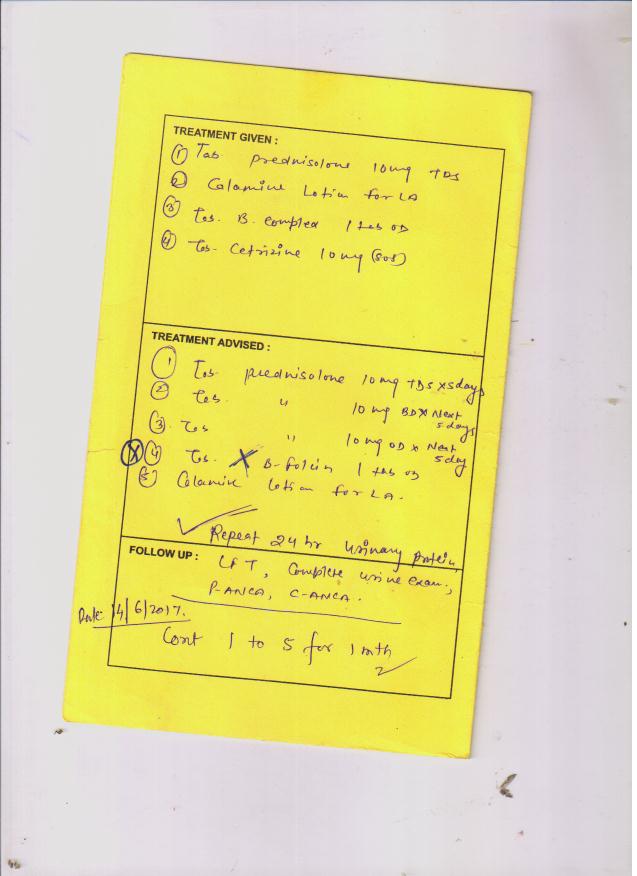 TREATMENT GIVEN :
① Tab. prednisolone 10mg TDS
② Calamine Lotion for LA
③ Tab. B. complex 1 tab OD
④ Tab. Cetrizine 10mg (SOS)
TREATMENT ADVISED :
① Tab. prednisolone 10mg TDS x 5days
② Tab. " 10mg BD x Next 5 days
③ Tab " 10mg OD x Next 5 day
X ④ Tab. X B-folcin 1 tab OD
⑤ Calamine lotion for LA.
✓ Repeat 24 hr urinary protein,
FOLLOW UP : LFT, Complete urine exam.,
P-ANCA, C-ANCA.
Date 14/6/2017.
Cont 1 to 5 for 1 mth